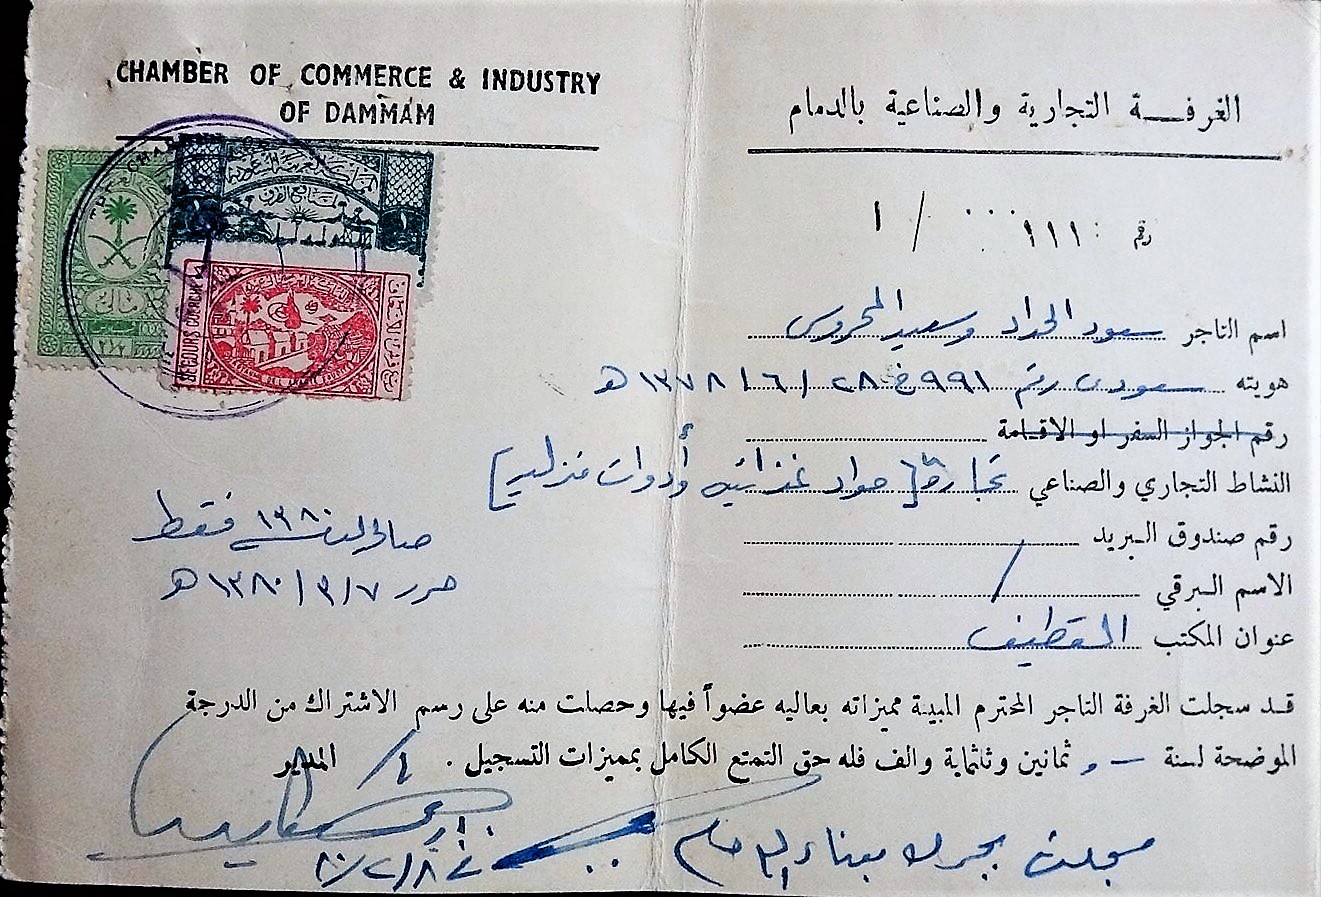 CHAMBER OF COMMERCE & INDUSTRY
OF DAMMAM
الغرفة التجارية والصناعية بالدمام
رقم ١١١٠ / ١
اسم التاجر سعود الحداد وسعيد المحروس
هويته سعودى رقم ٩٩١ في ٢٨ / ٦ / ١٣٧٨ هـ
رقم الجواز السفر او الاقامة
النشاط التجاري والصناعي تجارة [ مواد غذائيه وأدوات منزليه ]
رقم صندوق البريد
الاسم البرقي /
عنوان المكتب القطيف
صالح لسنة ١٣٨٠ فقط
حرر ٣/٧ / ١٣٨٠ هـ
قد سجلت الغرفة التاجر المحترم المبينة مميزاته بعاليه عضواً فيها وحصلت منه على رسم الاشتراك من الدرجة
الموضحة لسنة — و ثمانين وثلثماية والف فله حق التمتع الكامل بمميزات التسجيل . المدير
سجلت بجمرك ميناء الدمام